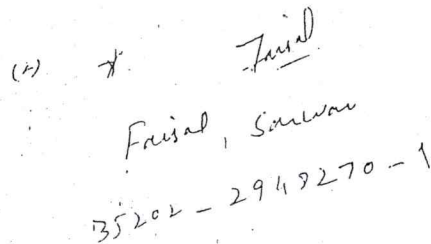 (2) Faisal
Faisal, Sarwar
35202-2948270-1